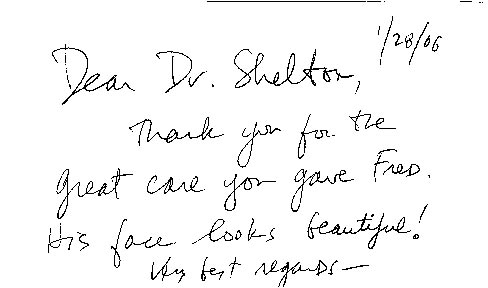 1/28/06
Dear Dr. Shelton,
Thank you for the
great care you gave Fred.
His face looks beautiful!
My best regards—